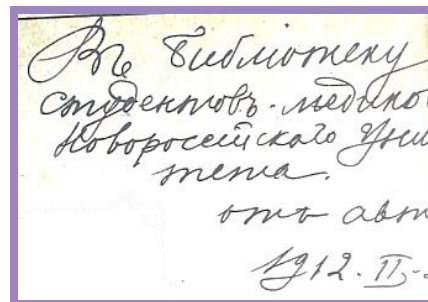 Въ Библіотеку
студентовъ-медико
Новороссійскаго Уни
тета.
отъ авт
1912. II.